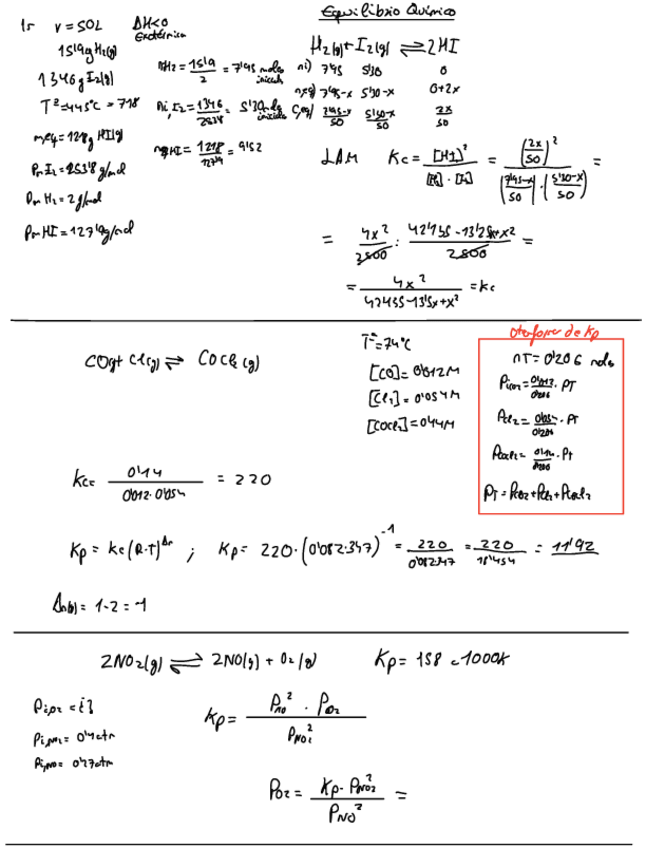 Equilibrio Químico
1r V=50L ΔH<0
Exotérmica
15'9g H₂(g)
1346g I₂(g)
Tª=445ºC=718
m,eq=121'8g HI(g)
Pm I₂=253'8 g/mol
Pm H₂=2g/mol
Pm HI=127'9g/mol
nH₂ = 15'9/2 = 7'95 moles iniciales
ni, I₂ = 1346/253'8 = 5'30 moles iniciales
nHI = 1218/127'9 = 9'52
H₂(g)+I₂(g) ⇌ 2HI
ni) 7'95 5'30 0
neq) 7'95-x 5'30-x 0+2x
Ceq) 7'95-x/50 5'30-x/50 2x/50
LAM Kc = [HI]²/[H₂]·[I₂] = (2x/50)²/(7'95-x/50)·(5'30-x/50) =
= 4x²/2500 : 42'135-13'25x+x²/2500 =
= 4x²/42'135-13'25x+x² = Kc
CO(g)+ Cl(g) ⇌ COCl₂(g)
Tª=74ºC
[CO]=0'012M
[Cl₂]=0'054M
[COCl₂]=0'14M
Otra forma de Kp
nT=0'206 moles
Pco₂=0'012/0'206·PT
Pcl₂=0'054/0'206·PT
Pcocl₂=0'14/0'206·PT
PT=Pco₂+Pcl₂+Pcocl₂
Kc= 0'14/0'012·0'054 = 220
Kp = Kc(R·T)^Δn ; Kp= 220·(0'082·347)⁻¹ = 220/0'082·347 = 220/18'454 = 11'92
Δn(g) = 1-2 = -1
2NO₂(g) ⇌ 2NO(g) + O₂(g) Kp= 158 a 1000K
Pi,O₂ = ¿?
Pi,NO₂= 0'4atm
Pi,NO= 0'27atm
Kp= P_NO² · P_O₂/P_NO₂²
P_O₂ = Kp·P_NO₂²/P_NO² =